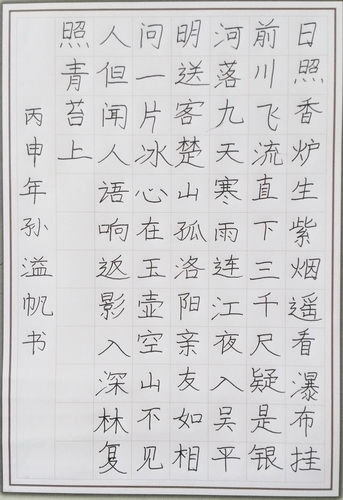 日照香炉生紫烟遥看瀑布挂
前川飞流直下三千尺疑是银
河落九天寒雨连江夜入吴平
明送客楚山孤洛阳亲友如相
问一片冰心在玉壶空山不见
人但闻人语响返影入深林复
照青苔上
丙申年孙溢帆书